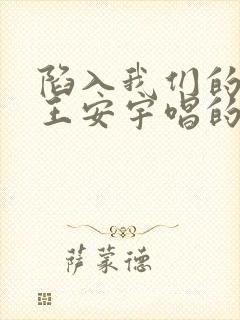 陷入我们的
王安宇唱的
萨蒙德